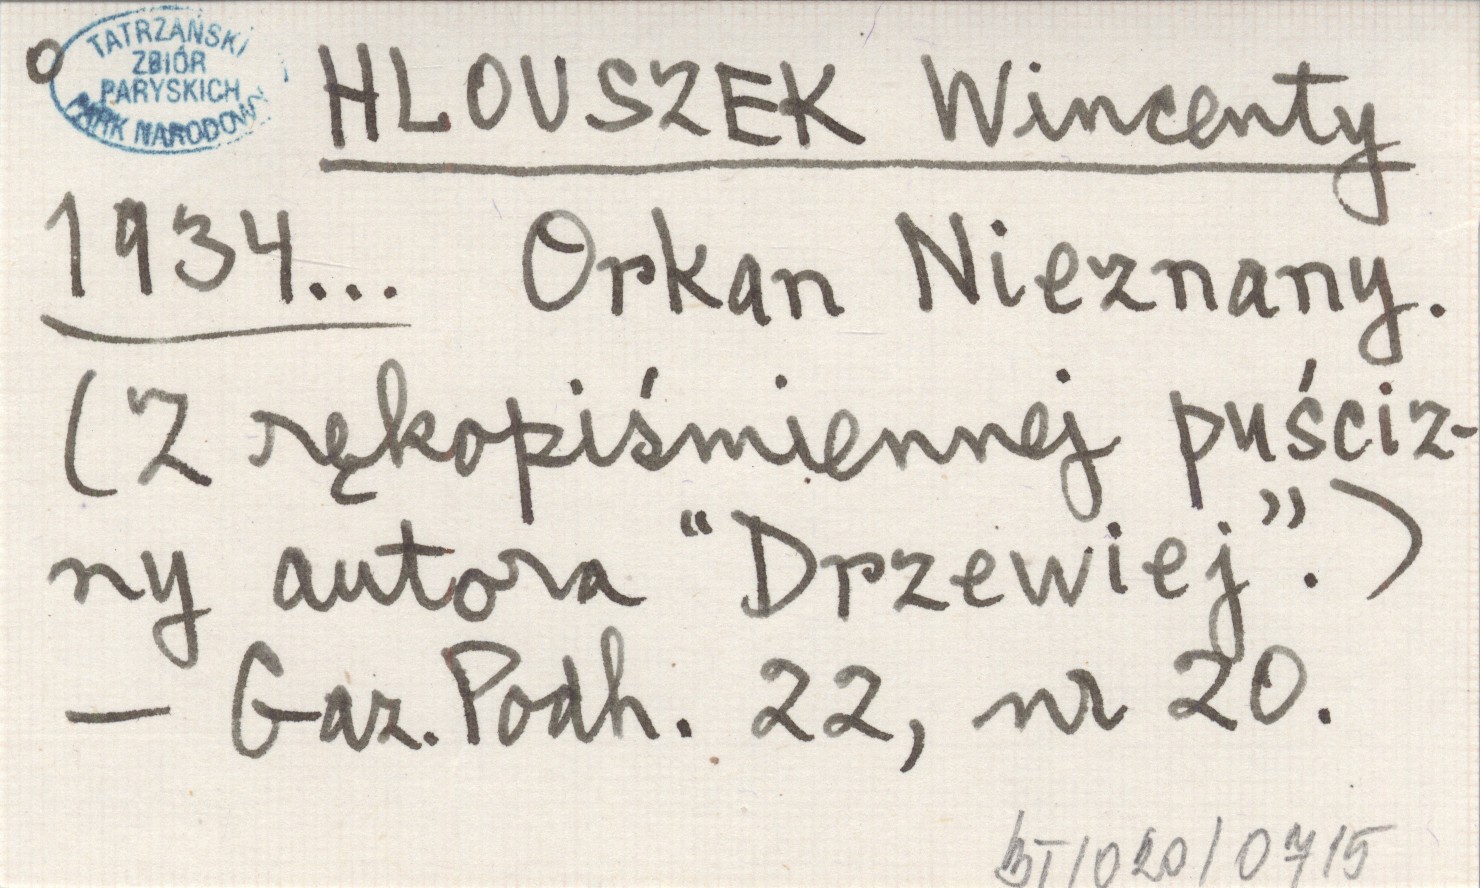 TATRZAŃSKI
ZBIÓR
PARYSKICH
PARK NARODOWY
HLOUSZEK Wincenty
1934... Orkan Nieznany.
(Z rękopiśmiennej puściz-
ny autora "Drzewiej".)
— Gaz. Podh. 22, nr 20.
BI/020/0715